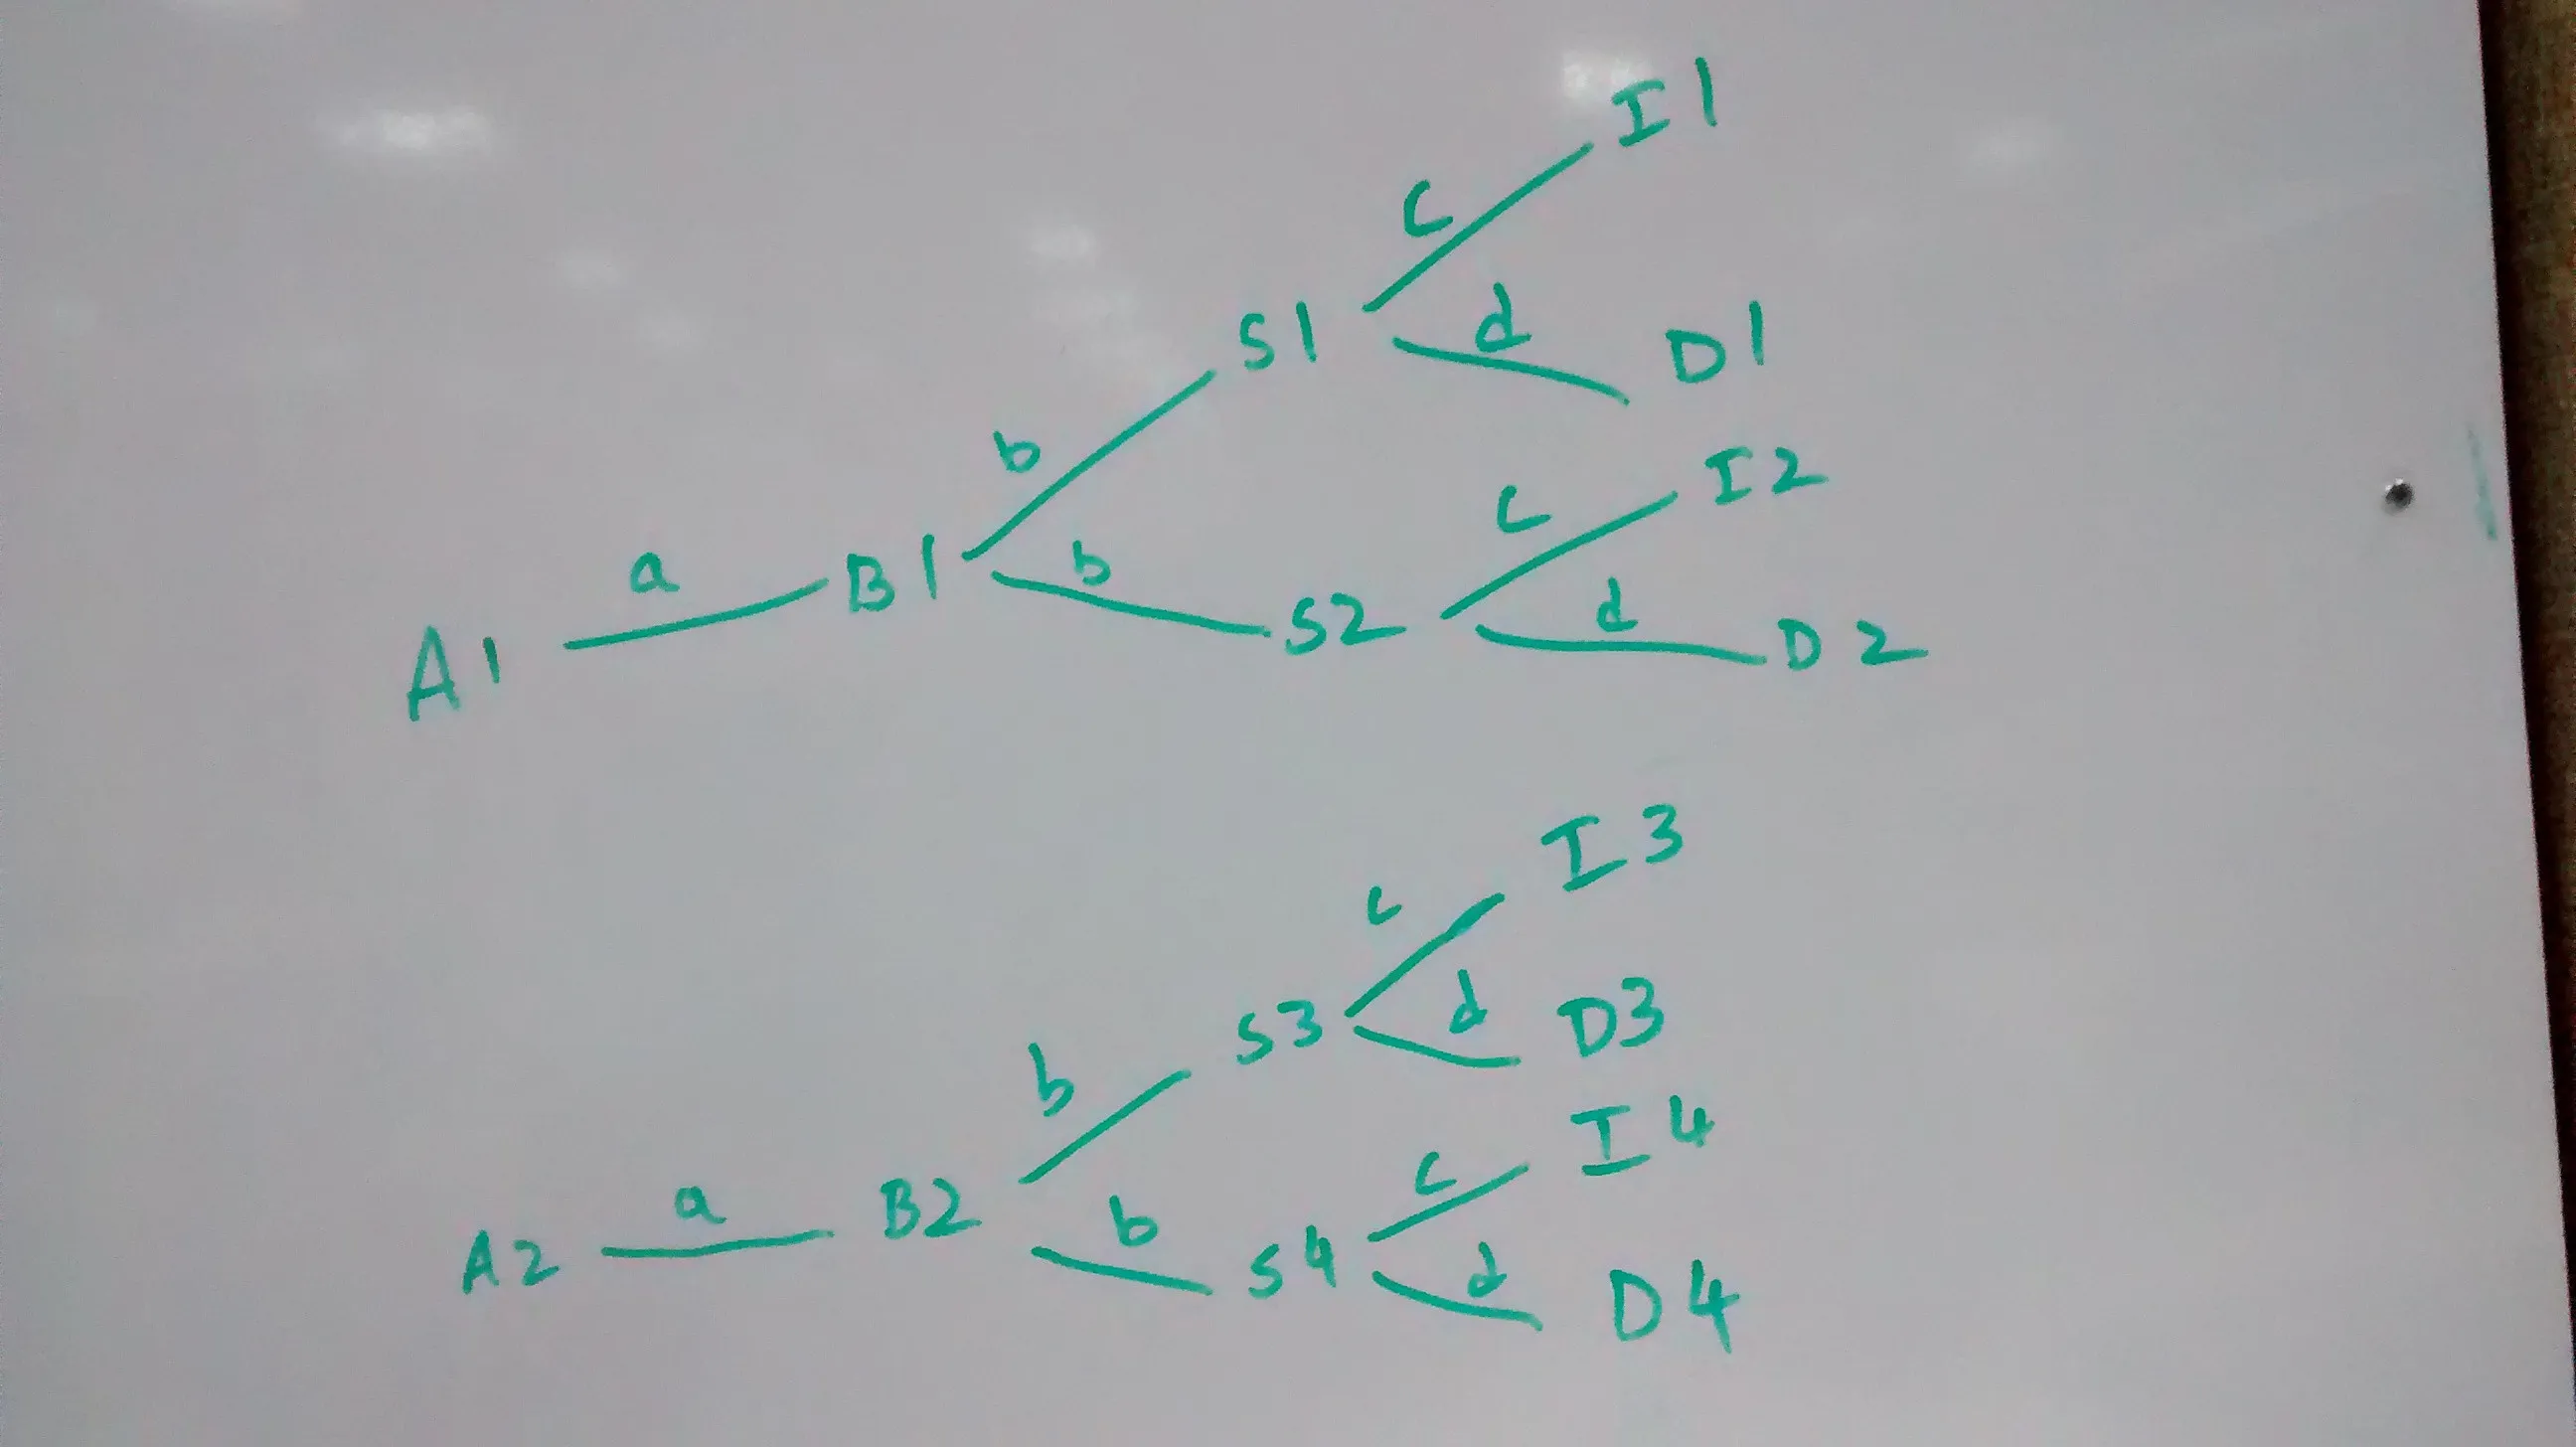 I1
c
S1
d
D1
b
I2
c
A1 a B1
b
S2
d
D2
I3
c
S3
d
D3
b
I4
c
A2 a B2
b
S4
d
D4